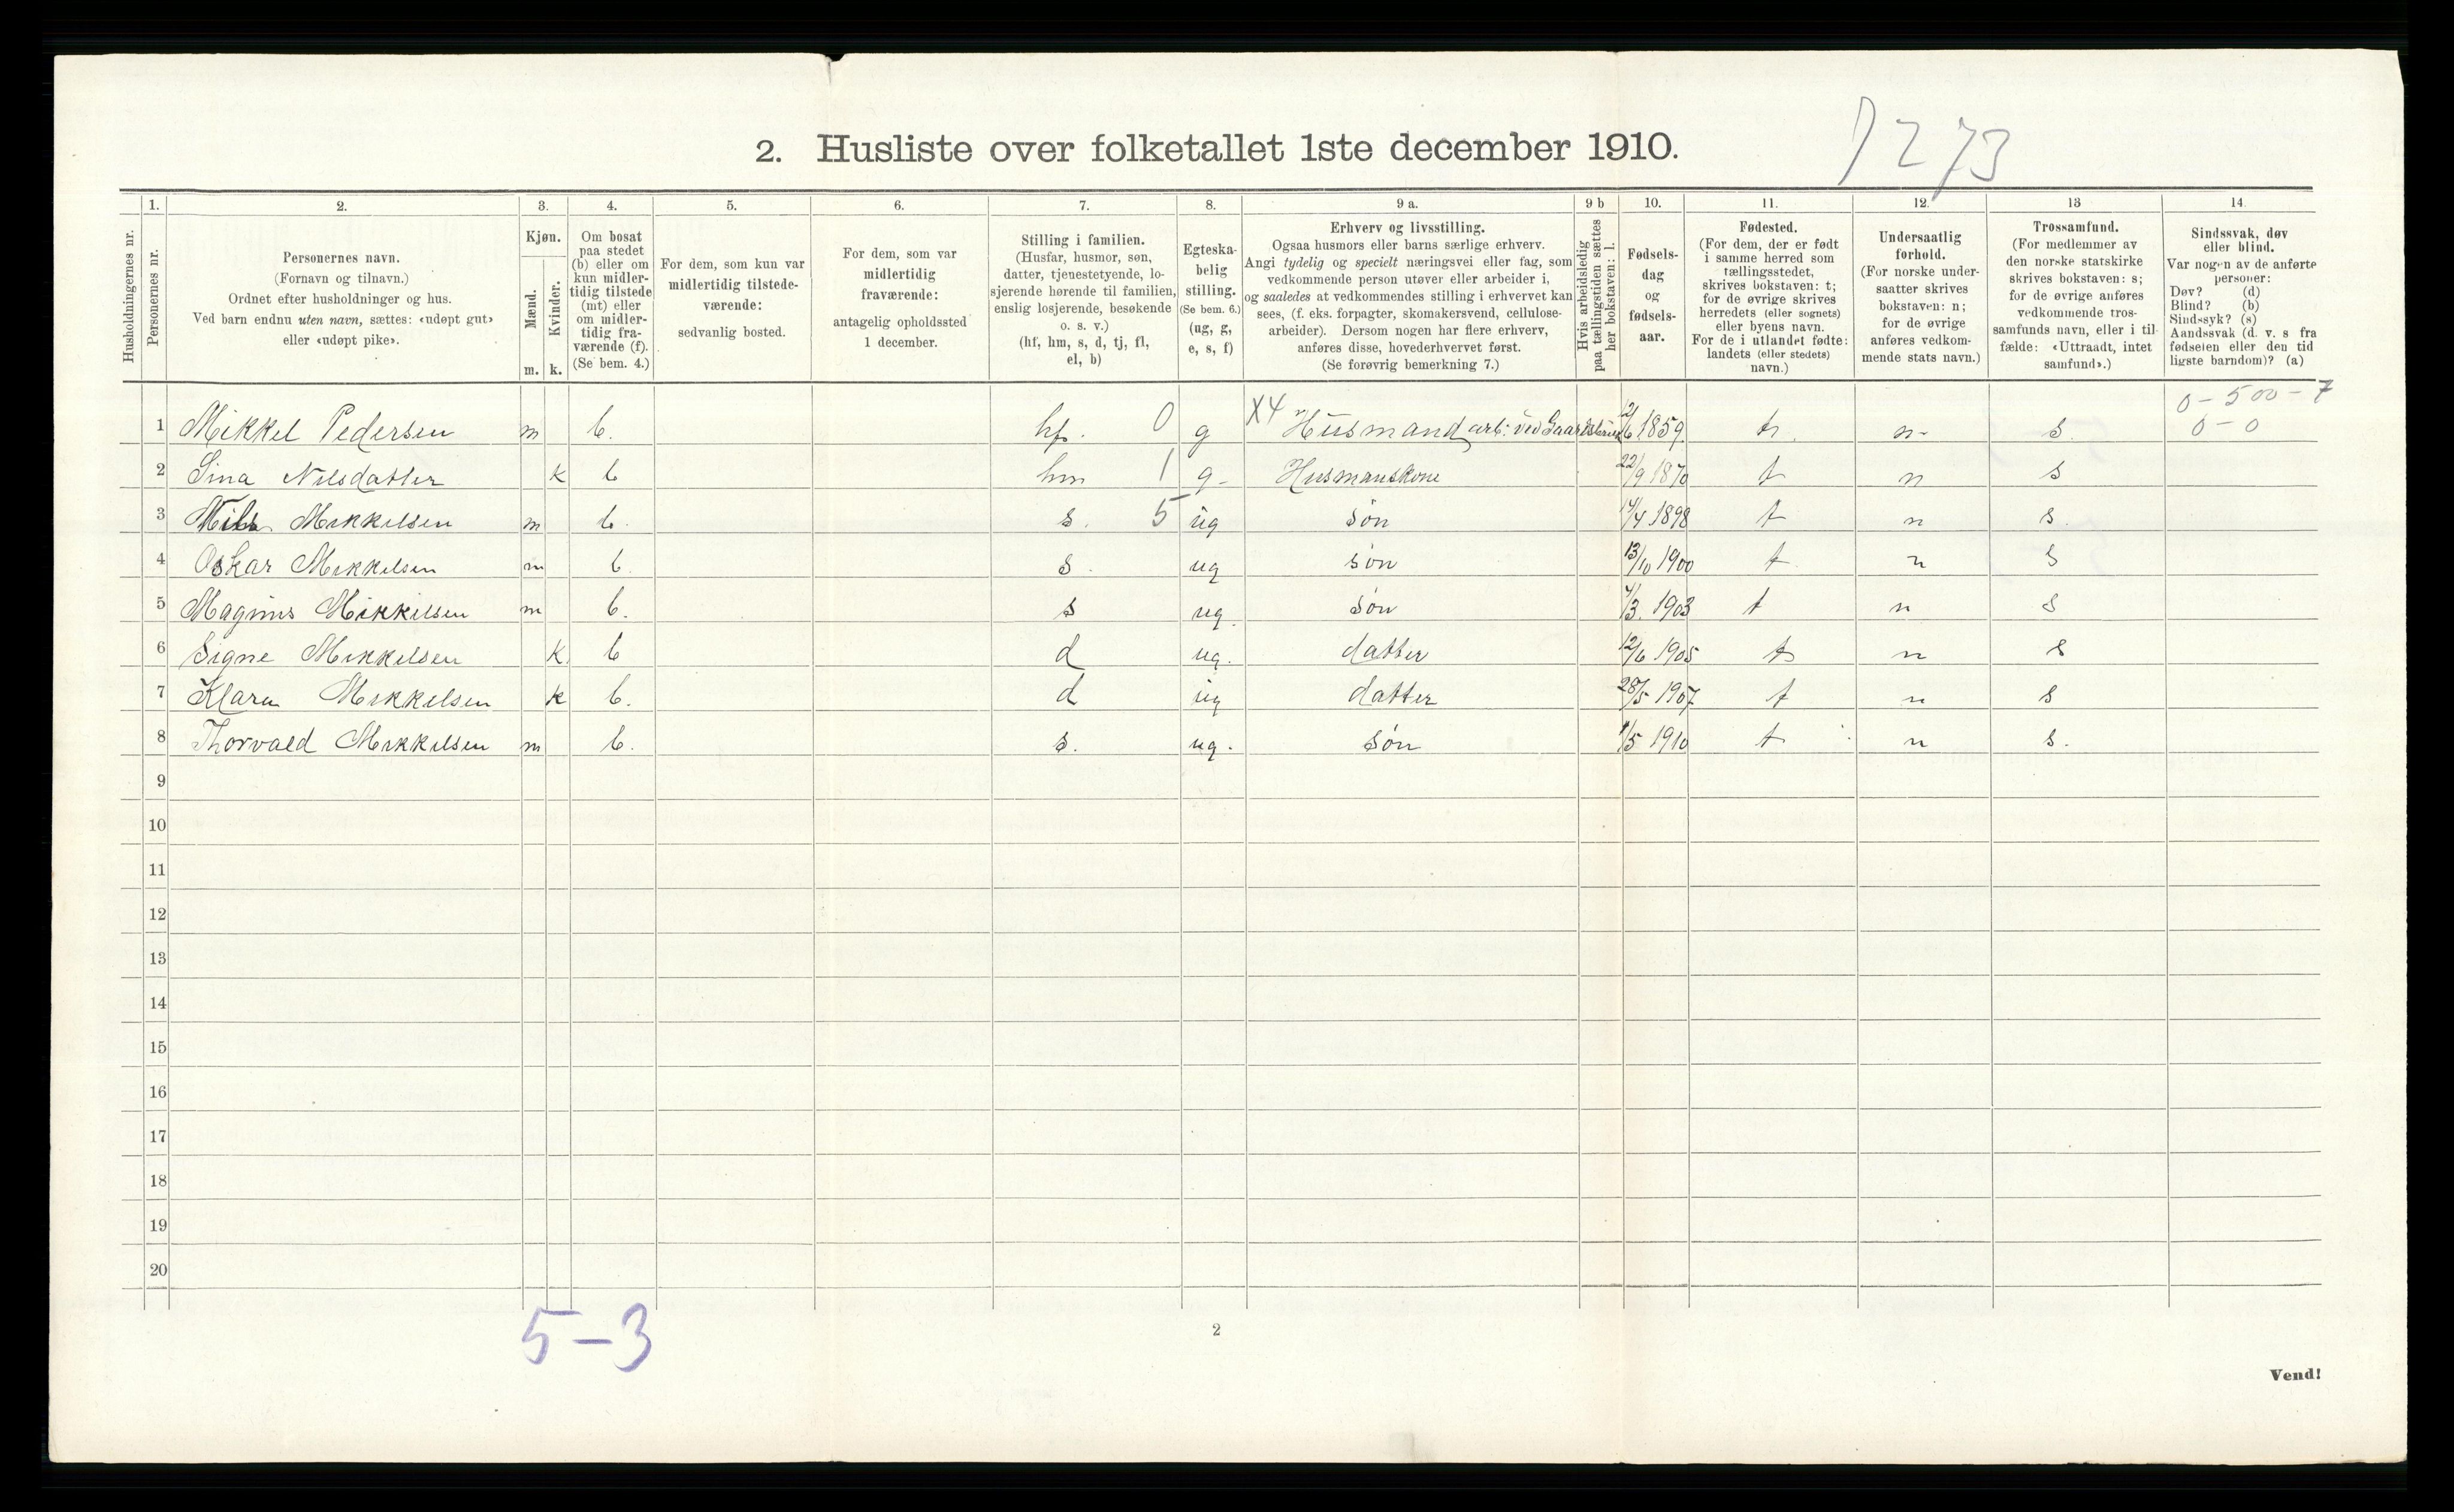 7273
2. Husliste over folketallet 1ste december 1910.
1. 2. 3. 4. 5. 6. 7. 8. 9 a. 9 b 10. 11. 12. 13 14.
Husholdningernes nr.
Personernes nr.
Personernes navn.
(Fornavn og tilnavn.)
Ordnet efter husholdninger og hus.
Ved barn endnu uten navn, sættes: «udøpt gut»
eller «udøpt pike».
Kjøn.
Mænd.
Kvinder.
m. k.
Om bosat
paa stedet
(b) eller om
kun midler-
tidig tilstede
(mt) eller
om midler-
tidig fra-
værende (f).
(Se bem. 4.)
For dem, som kun var
midlertidig tilstede-
værende:
sedvanlig bosted.
For dem, som var
midlertidig
fraværende:
antagelig opholdssted
1 december.
Stilling i familien.
(Husfar, husmor, søn,
datter, tjenestetyende, lo-
sjerende hørende til familien,
enslig losjerende, besøkende
o. s. v.)
(hf, hm, s, d, tj, fl,
el, b)
Egteska-
belig
stilling.
(Se bem. 6.)
(ug, g,
e, s, f)
Erhverv og livsstilling.
Ogsaa husmors eller barns særlige erhverv.
Angi tydelig og specielt næringsvei eller fag, som
vedkommende person utøver eller arbeider i,
og saaledes at vedkommendes stilling i erhvervet kan
sees, (f. eks. forpagter, skomakersvend, cellulose-
arbeider). Dersom nogen har flere erhverv,
anføres disse, hovederhvervet først.
(Se forøvrig bemerkning 7.)
Hvis arbeidsledig
paa tællingstiden sættes
her bokstaven: l.
Fødsels-
dag
og
fødsels-
aar.
Fødested.
(For dem, der er født
i samme herred som
tællingsstedet,
skrives bokstaven: t;
for de øvrige skrives
herredets (eller sognets)
eller byens navn.
For de i utlandet fødte:
landets (eller stedets)
navn.)
Undersaatlig
forhold.
(For norske under-
saatter skrives
bokstaven: n;
for de øvrige
anføres vedkom-
mende stats navn.)
Trossamfund.
(For medlemmer av
den norske statskirke
skrives bokstaven: s;
for de øvrige anføres
vedkommende tros-
samfunds navn, eller i til-
fælde: «Uttraadt, intet
samfund».)
Sindssvak, døv
eller blind.
Var nogen av de anførte
personer:
Døv? (d)
Blind? (b)
Sindssyk? (s)
Aandssvak (d. v. s fra
fødselen eller den tid
ligste barndom)? (a)
0 - 500 - 7
1 Mikkel Pedersen m b. hf. 0 g X4 Husmand arb. ved Gaardsbruk 12/6 1859 t. n- s. 0 - 0
2 Sina Nilsdatter k b hm 1 g- Husmanskone 22/9 1870 t n s
3 Nils Mikkelsen m b. s. 5 ug søn 14/4 1898 t n s
4 Oskar Mikkelsen m b. s. ug søn 13/10 1900 t n s
5 Magnus Mikkelsen m b. s ug. søn 4/3. 1903 t n s
6 Signe Mikkelsen k. b d ug. datter 12/6 1905 t n s
7 Klara Mikkelsen k b. d ug datter 28/5 1907 t n s
8 Thorvald Mikkelsen m b. s. ug. søn 1/5 1910 t n s.
9
10
11
12
13
14
15
16
17
18
19
20
5-3
2
Vend!